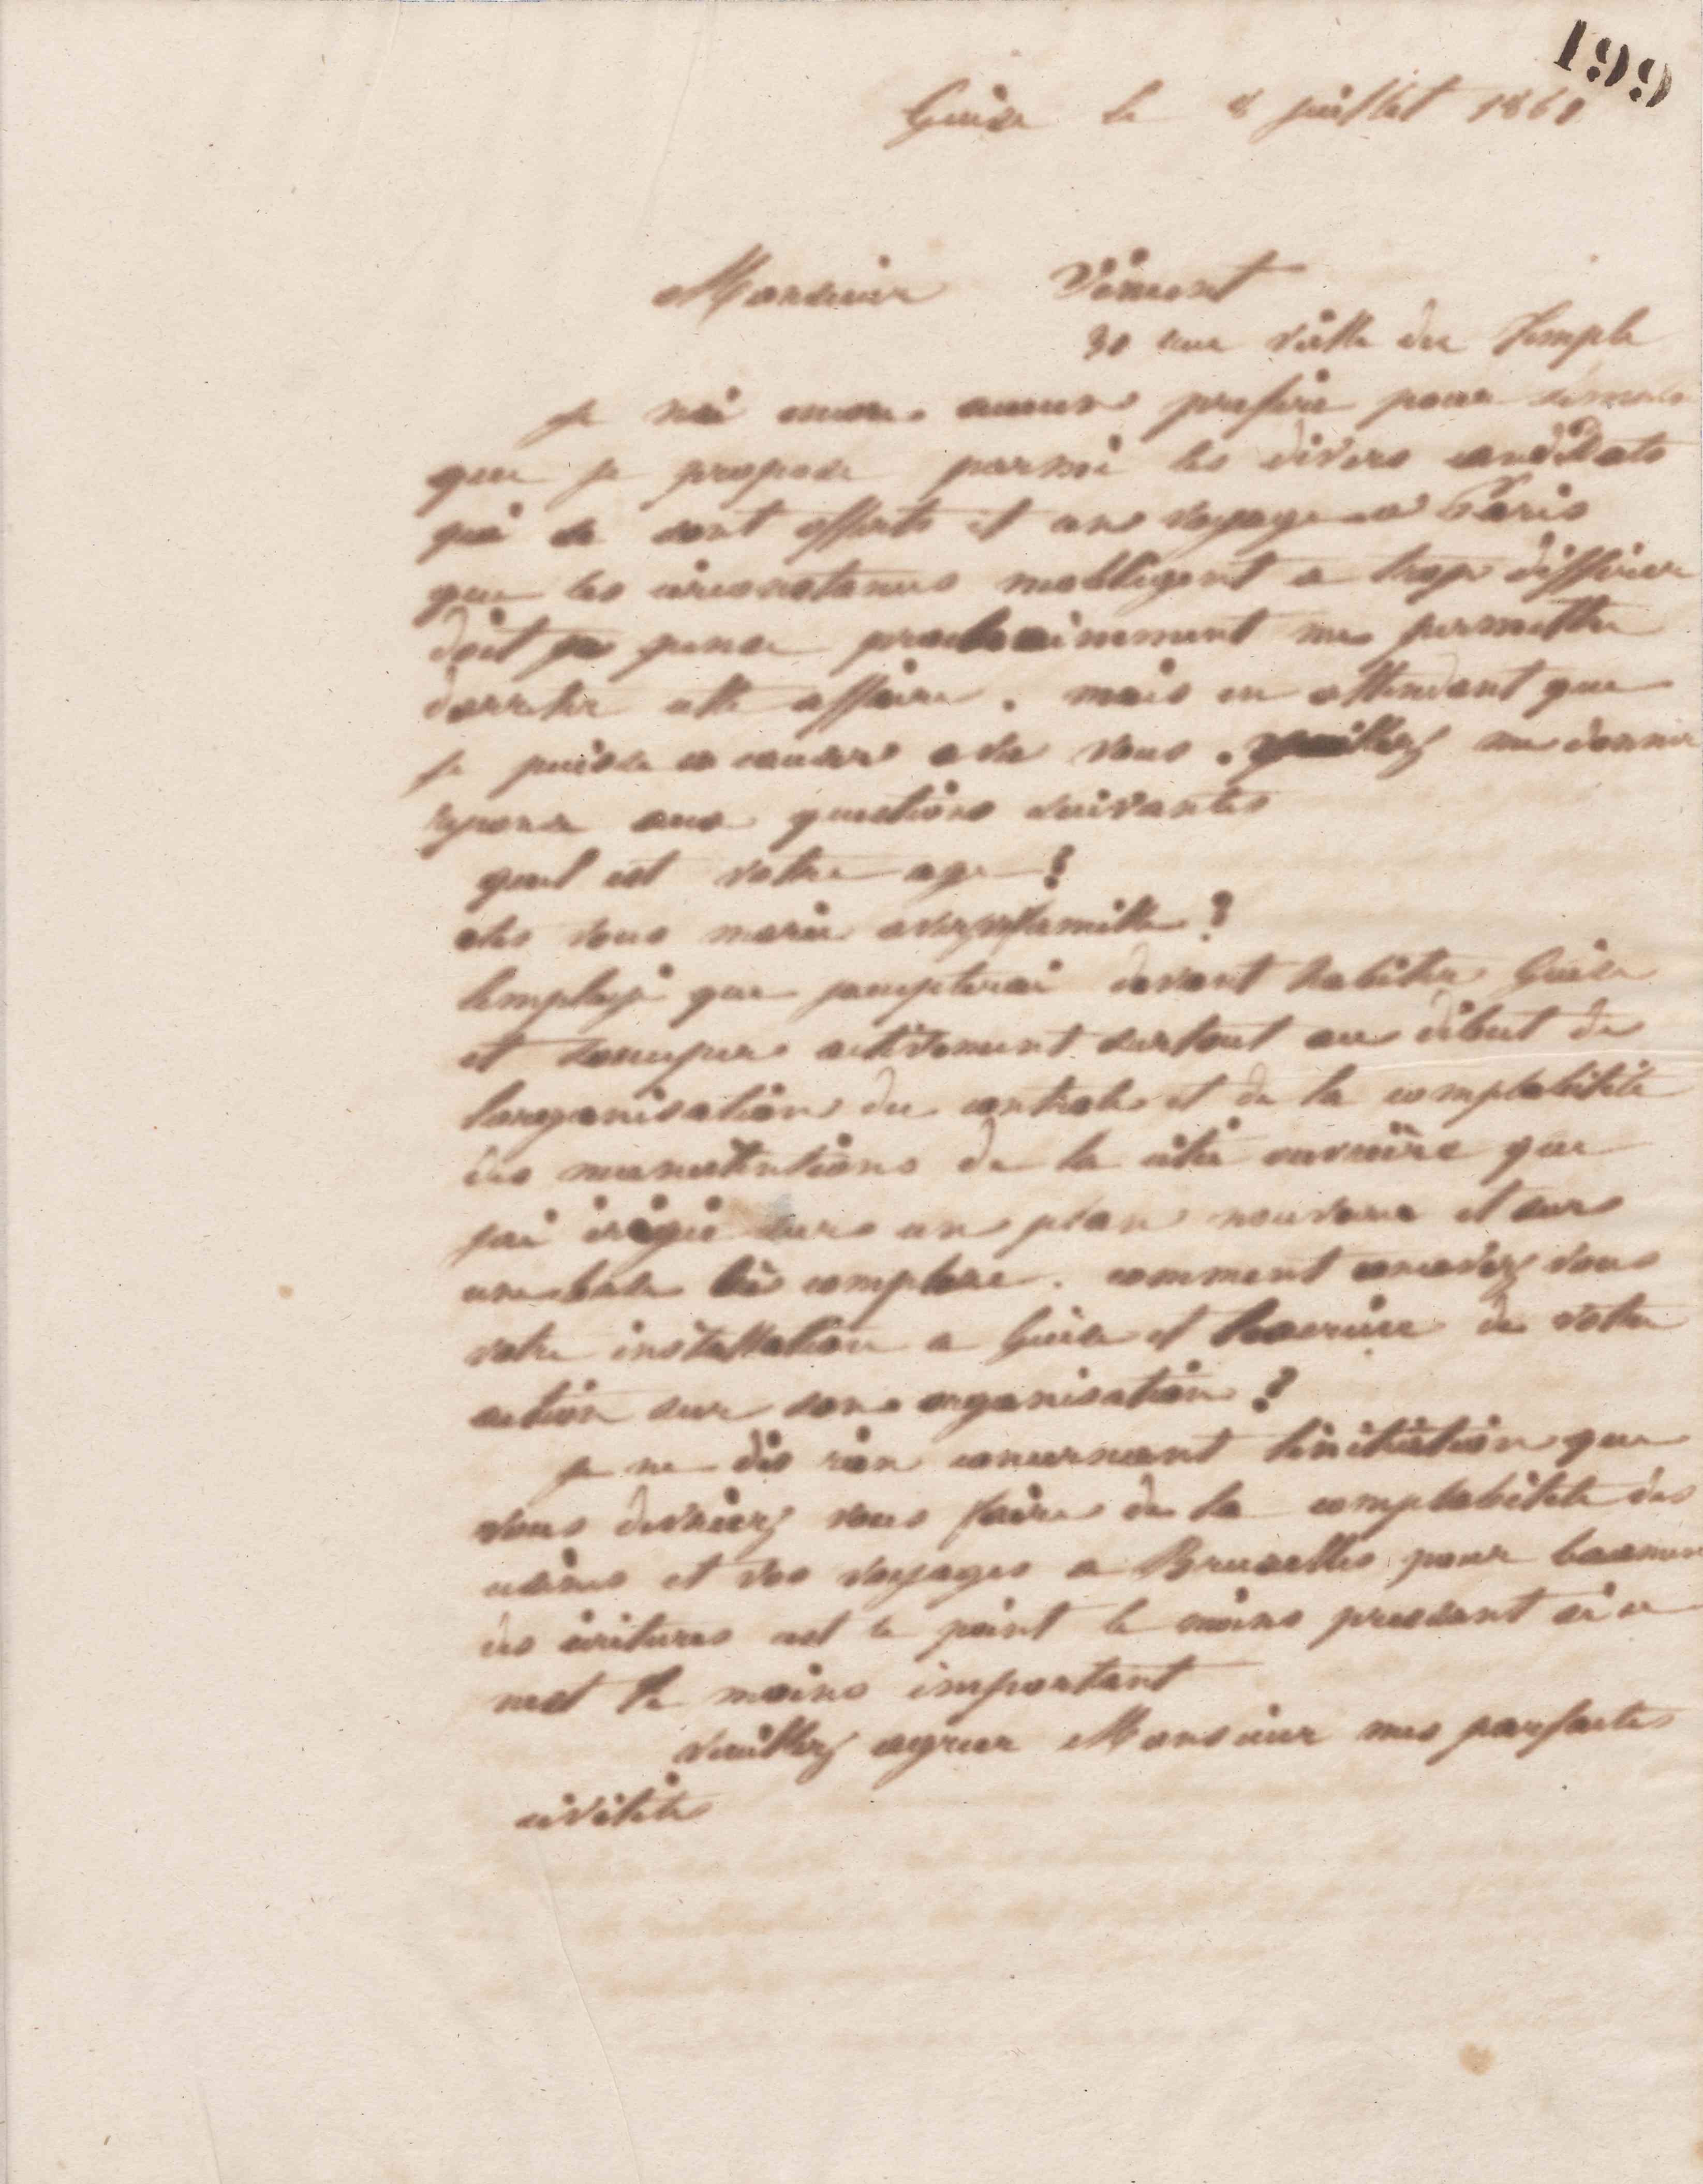 199
Guise le 8 juillet 1861
Monsieur Vimont
30 rue vielle du Temple
Je nai encore aucune prefere pour
que je propose parmi les divers candidats
qui se sont offerts et un voyage a Paris
que les circonstances mobligent a trop differer
doit je pense prochainement me permettre
darreter cette affaire. mais en attendant que
je puisse causer avec vous. veuillez me donner
reponse aux questions suivantes
quel est votre age ?
etes vous marie avez famille ?
lemploye que jaccepterai devant habiter Guise
et soccuper activement surtout au debut de
lorganisation du controle et de la comptabilite
des manutentions de la cite ouvriere que
jai érigée sur un plan nouveau et sur
une base tres complexe. comment concevez vous
votre installation a Guise et lexercice de votre
action sur son organisation ?
Je ne dis rien concernant linitiation que
vous devriez vous faire de la comptabilite des
usines et vos voyages a Bruxelles pour lexamen
des écritures cest le point le moins pressant si ce
nest le moins important
veuillez agreer Monsieur mes parfaites
civilités